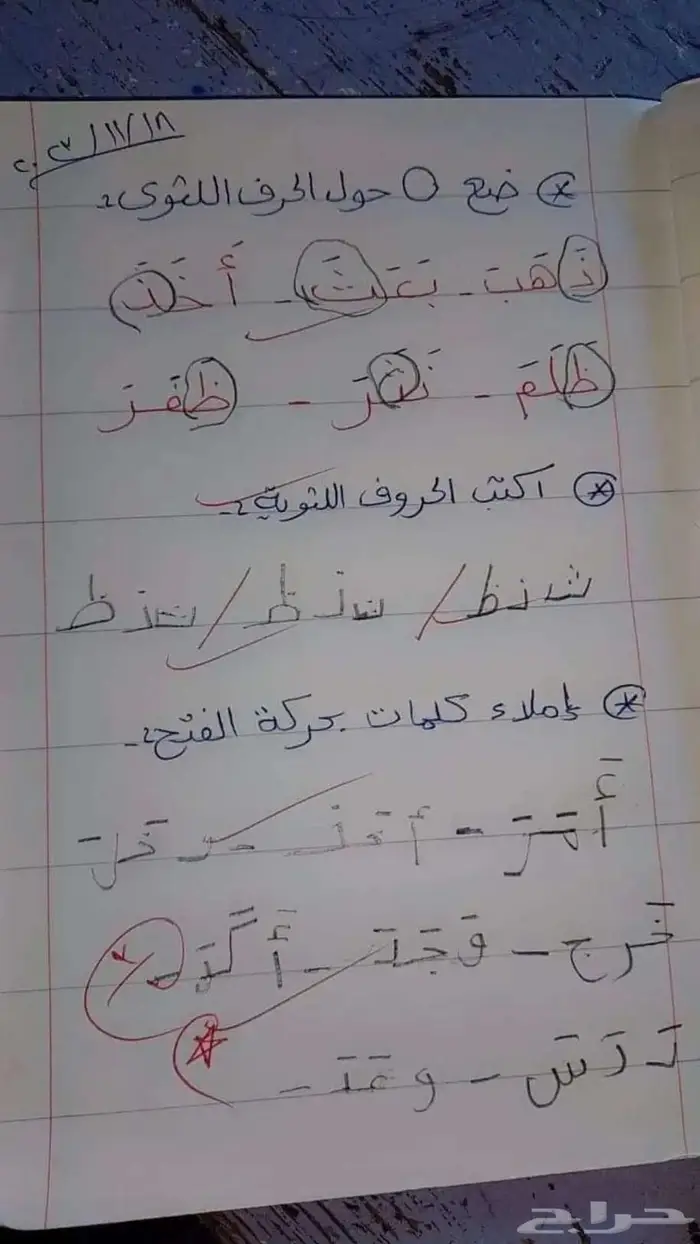 ٢٠٢٠/١١/١٨
* ضع O حول الحرف اللثوي :-
ذَهَبَ - بَعَثَ - أَخَذَ
ظَلَمَ - نَثَرَ - ظَفَرَ
* اكتب الحروف اللثوية :-
ث ذ ظ / ث ذ ظ / ث ذ ظ
* إملاء كلمات بحركة الفتح :-
أَمَرَ - أخَذ
خَرج - وَجَدَ - أَكَلَ
دَرَسَ - وعَدَ -
حراج